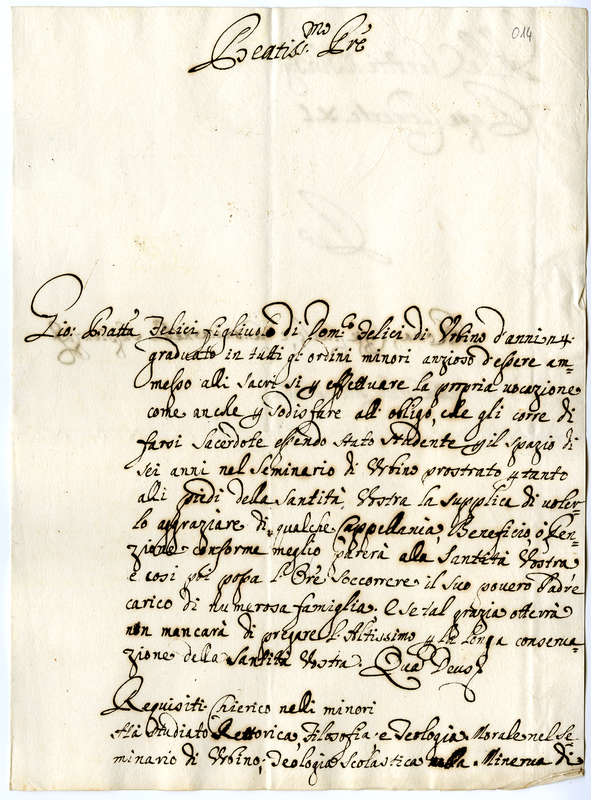 014
Beatis.mo Pre
Gio: Batta Felici figliuolo di Dom.co Felici di Urbino d'anni 24
graduato in tutti gl'ordini minori anzioso d'essere am=
messo alli Sacri si p effettuare la propria uocazione
come anche p sodisfare all'obligo, che gli corre di
farsi Sacerdote essendo stato Studente p il spazio di
sei anni nel Seminario di Urbino prostrato p tanto
alli piedi della Santità Vostra la supplica di uoler=
lo aggraziare di qualche Cappellania, Beneficio, ò Pen=
zione conforme meglio parerà alla Santità Vostra
e cosi poi possa l'Ore soccorrere il suo pouero Padre
carico di numerosa famiglia. E se tal grazia otterrà
non mancarà di pregare l'Altissimo p la longa conserua=
zione della Santità Vostra. Qua Deus
Requisiti. Chierico nelli minori
Hà studiato Rettorica, Filosofia e Teologia Morale nel Se=
minario di Urbino; Teologia Scolastica nella Minerua di